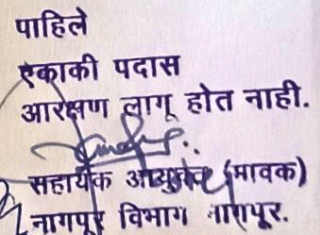 पाहिले
एकाकी पदास
आरक्षण लागू होत नाही.
सहायक आयुक्त (मावक)
नागपूर विभाग नागपूर.